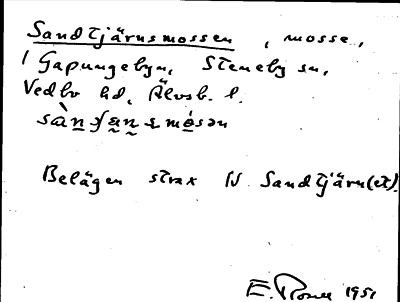 Sandtjärnsmossen , mosse,
i Gapungebyn, Steneby sn,
Vedbo hd, Älvsb. l.
Belägen strax N Sandtjärn(et).
E. 1951